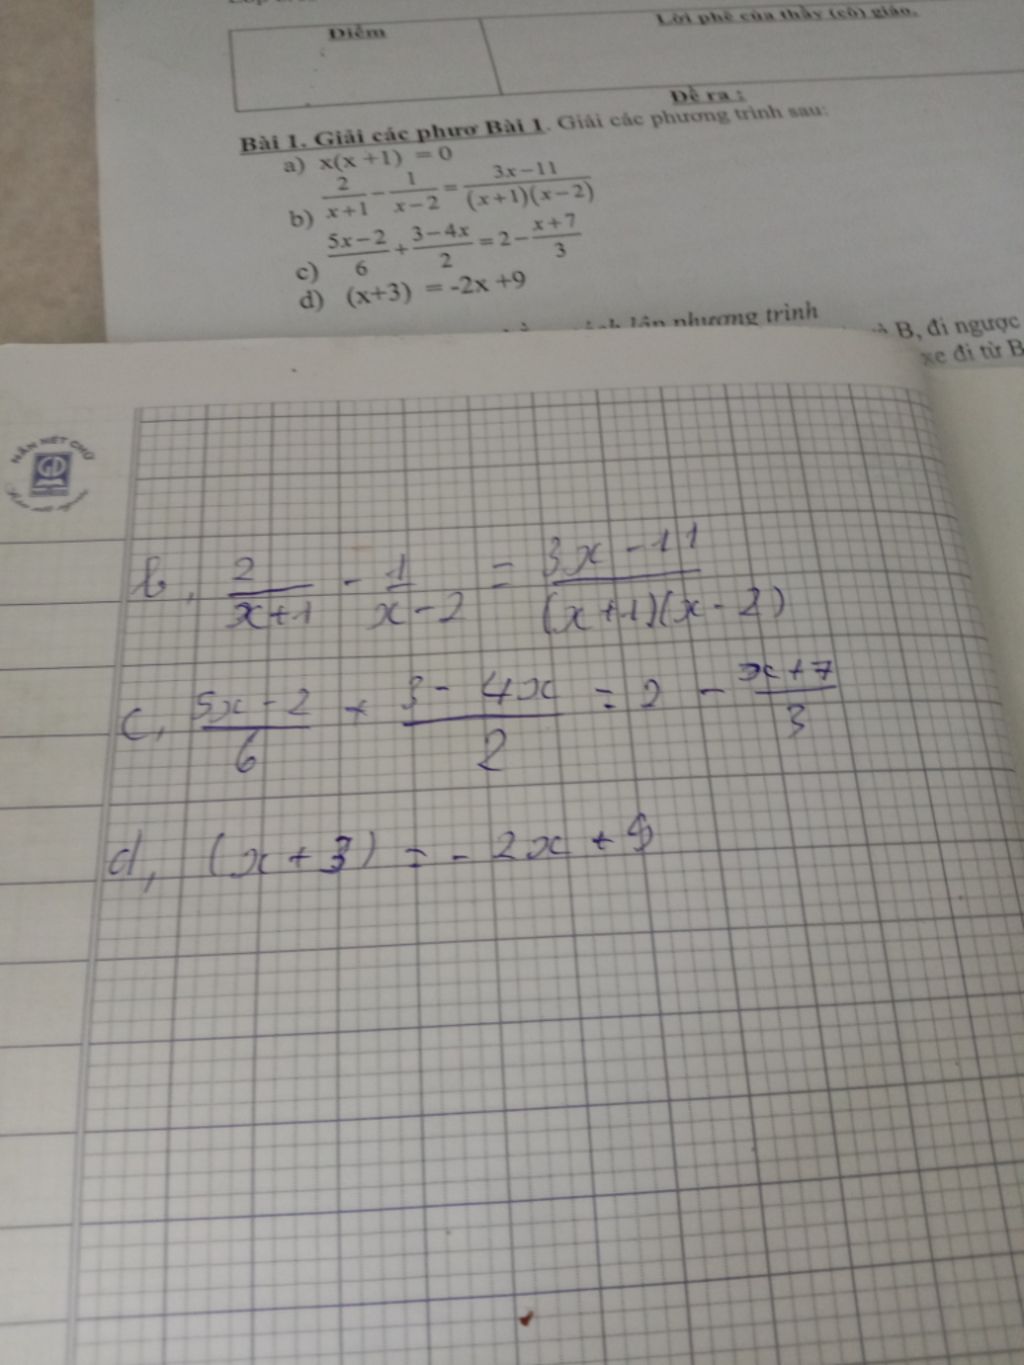 Điểm
Lời phê của thầy (cô) giáo.
Đề ra :
Bài 1. Giải các phươ Bài 1. Giải các phương trình sau:
a) x(x +1) = 0
b) 2/(x+1) − 1/(x−2) = (3x−11)/((x+1)(x−2))
c) (5x−2)/6 + (3−4x)/2 = 2 − (x+7)/3
d) (x+3) = -2x +9
lập phương trình
B, đi ngược
xe đi từ B
NẮN NÉT CHỮ
GD
b, 2/(x+1) - 1/(x-2) = (3x-11)/((x+1)(x-2))
c, (5x-2)/6 + (3-4x)/2 = 2 - (x+7)/3
d, (x+3) = -2x + 9